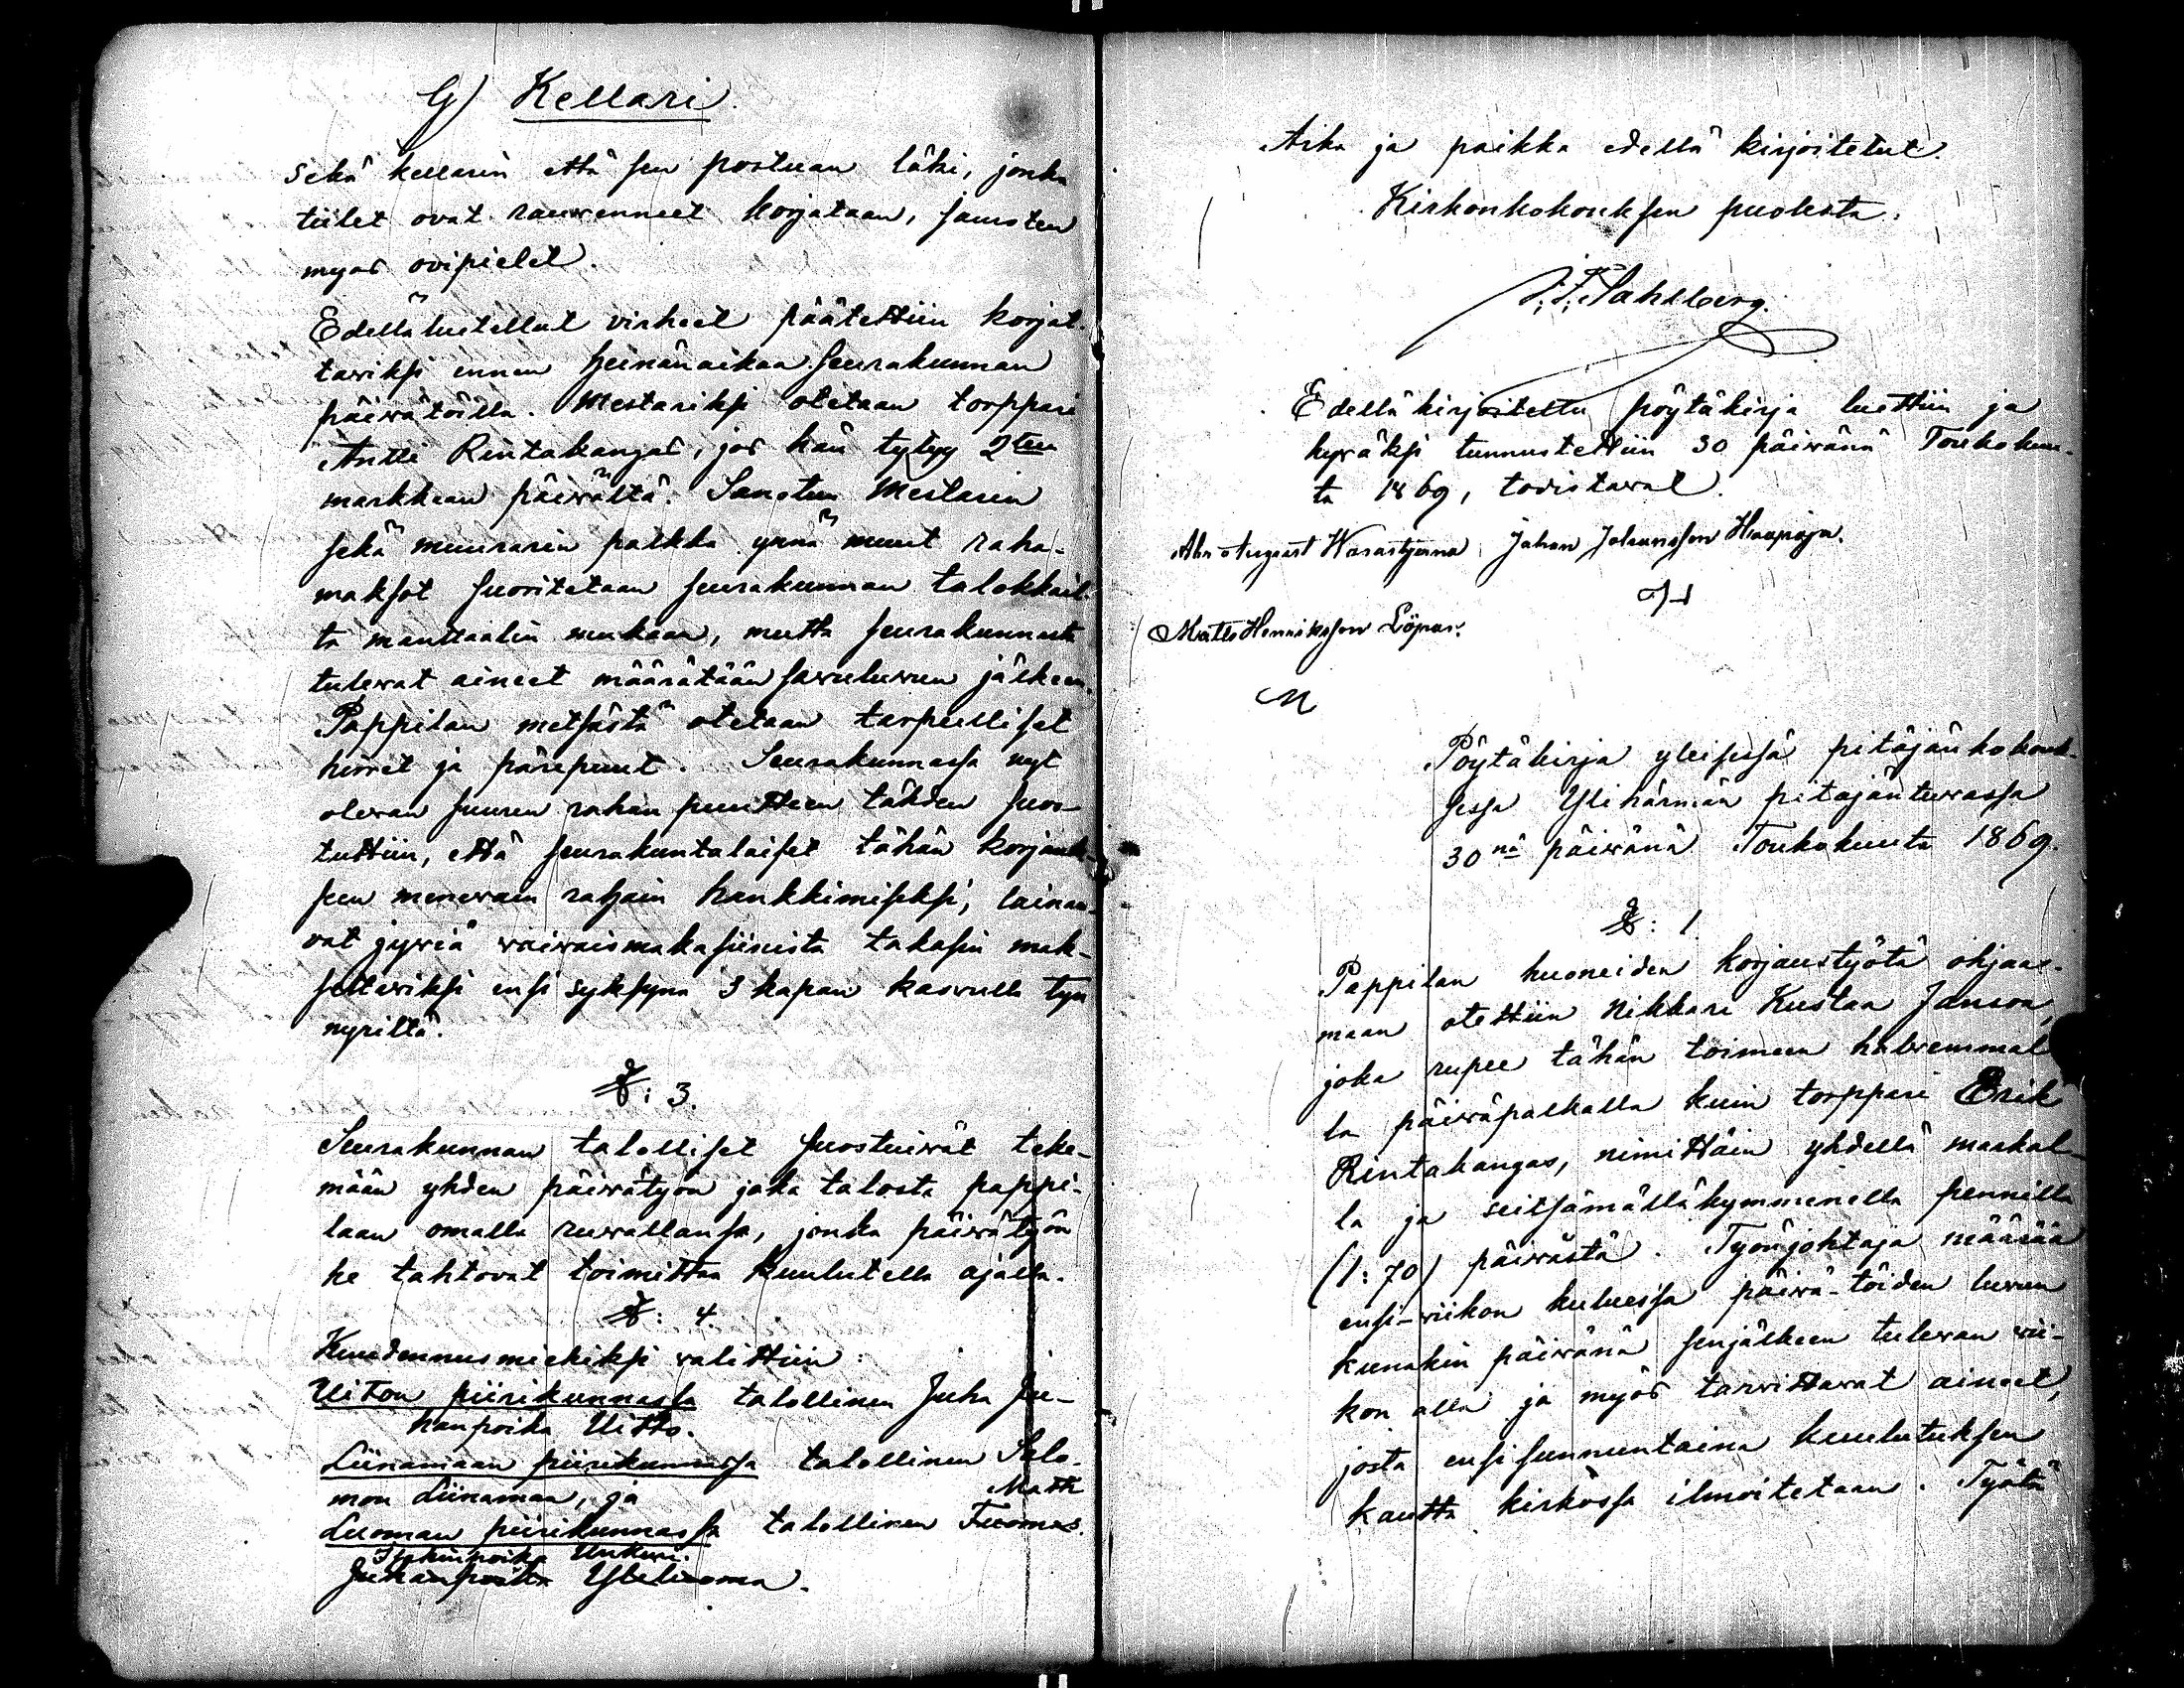 G) Kellari.
Sekä kellarin että sen porstuan läki, jonka
tiilet ovat rauwenneet korjataan, samoten
myös ovipielet.
Edelläluetellut virheet päätettiin korjat-
tawiksi ennen heinänaikaa seurakunnan
päiwätöillä. Mestariksi otetaan torppari
Antti Rintakangas, jos hän tytyy 2ten
markkaan päiwältä. Sanotun Mestarin
sekä muurarin palkka ynnä muut raha-
maksot suoritetaan seurakunnan talokkail-
ta manttaalin mukaan, mutta seurakunnasta
tulewat aineet määrätään sawuluwun jälkeen.
Pappilan metsästä otetaan tarpeelliset
hirret ja pärepuut. Seurakunnassa nyt
olewan suuren rahan puutteen tähden suos-
tuttiin, että seurakuntalaiset tähän korjauk-
seen menewäin rahain hankkimiseksi, lainaa-
vat jywiä waiwaismakasiinista takasin mak-
settawiksi ensi syksynä 3 kapan kaswulla tyn
nyriltä.
§: 3.
Seurakunnan talolliset suostuiwat teke-
mään yhden päiwätyön joka talosta pappi-
laan omalla ruwallansa, jonka päiwätyön
he tahtovat toimittaa kuulutella ajalla.
§: 4.
Kuudennusmiehiksi valittiin:
Uiton piirikunnassa talollinen Juha Ju-
hanpoika Uitto.
Liinamaan piirikunnassa talollinen Salo-
mon Liinamaa, ja Matti
Luoman piirikunnassa talollinen Tuomas
Iisakinpoika Unkuri.
Juhanpoika Yliluoma.
Aika ja paikka edellä kirjoitetut.
Kirkonkokouksen puolesta:
J. F. Sahlberg.
Edelläkirjoitettu pöytäkirja luettiin ja
hywäksi tunnustettiin 30 päiwänä Toukokuu-
ta 1869, todistawat.
Abr August Wasastjerna Johan Johansson Haapoja.
Matts Henriksson Löpas.
Pöytäkirja yleisessä pitäjänkokouk-
sessa Ylihärmän pitäjäntuwassa
30nä päiwänä Toukokuuta 1869.
§: 1
Pappilan huoneiden korjaustyötä ohjaa-
maan otettiin Nikkari Kustaa Janson,
joka rupee tähän toimeen halwemmal
la päiwäpalkalla kuin torppari Erik
Rintakangas, nimittäin yhdellä markal-
la ja seitsämälläkymmenellä pennillä
(1:70) päiwästä. Työnjohtaja määrää
ensi-wiikon kuluessa päiwä-töiden luwun
kunakin päiwänä senjälkeen tulewan wii-
kon alla ja myös tarwittawat aineet,
josta ensi sunnuntaina kuulutuksen
kautta kirkossa ilmoitetaan. Työtä